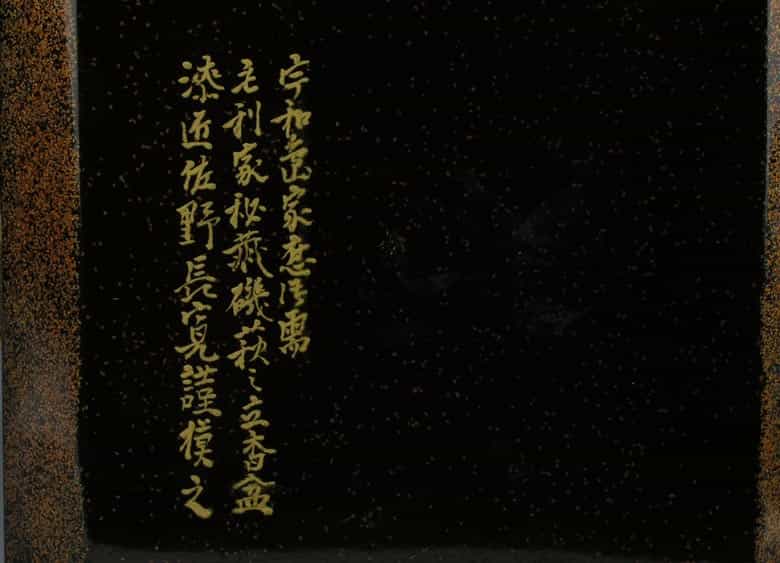 宇和嶌家應御需
毛利家秘蔵磯萩之立香盒
漆匠佐野長寛謹模之